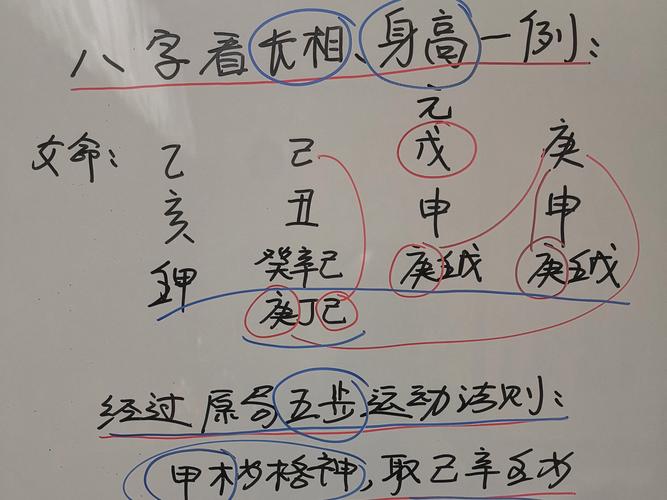 八字看长相、身高一例:
元
女命: 乙 己 戊 庚
亥 丑 申 申
壬甲 癸辛己 庚壬戊 庚壬戊
庚丁己
经过原局五步运动法则:
甲木为格神,取己辛壬为